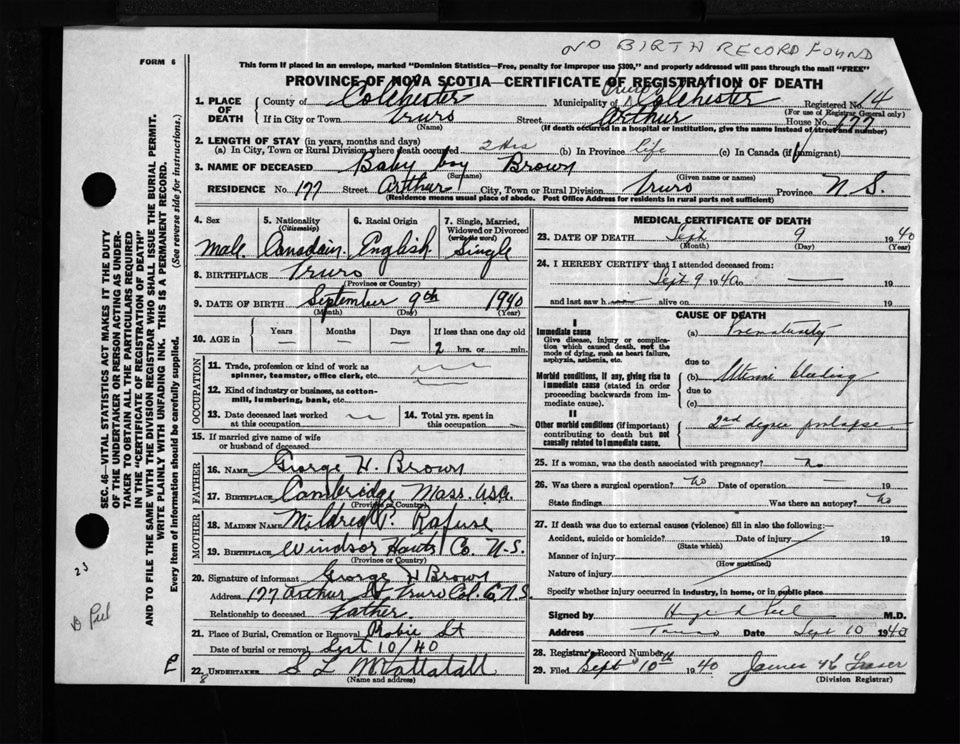 NO BIRTH RECORD FOUND
FORM 6
This form if placed in an envelope, marked "Dominion Statistics—Free, penalty for improper use $300," and properly addressed will pass through the mail "FREE"
PROVINCE OF NOVA SCOTIA—CERTIFICATE OF REGISTRATION OF DEATH
1. PLACE OF DEATH
County of Colchester Municipality of Colchester Registered No. 14
(For use of Registrar General only)
If in City or Town Truro Street Arthur House No. 177
(Name) (If death occurred in a hospital or institution, give the name instead of street and number)
2. LENGTH OF STAY (in years, months and days)
(a) In City, Town or Rural Division where death occurred 2 Hrs (b) In Province life (c) In Canada (if immigrant)
3. NAME OF DECEASED Baby boy Brown
(Surname) (Given name or names)
RESIDENCE No. 177 Street Arthur City, Town or Rural Division Truro Province N.S.
(Residence means usual place of abode. Post Office Address for residents in rural parts not sufficient)
4. Sex 5. Nationality (Citizenship) 6. Racial Origin 7. Single, Married, Widowed or Divorced (write the word)
Male Canadain English Single
8. BIRTHPLACE Truro
(Province or Country)
9. DATE OF BIRTH September 9th 1940
(Month) (Day) (Year)
10. AGE Years Months Days If less than one day old
— — — 2 hrs. or min.
OCCUPATION
11. Trade, profession or kind of work as spinner, teamster, office clerk, etc.
12. Kind of industry or business, as cotton-mill, lumbering, bank, etc.
13. Date deceased last worked at this occupation
14. Total yrs. spent in this occupation
15. If married give name of wife or husband of deceased
FATHER
16. NAME George H. Brown
17. BIRTHPLACE Cambridge Mass. USA.
(Province or Country)
MOTHER
18. MAIDEN NAME Mildred P. Rafuse
19. BIRTHPLACE Windsor Hants Co. N.S.
(Province or Country)
20. Signature of informant George H Brown
Address 177 Arthur St Truro Col. Co. N.S.
Relationship to deceased Father.
21. Place of Burial, Cremation or Removal Robie St
Date of burial or removal Sept 10/40
22. UNDERTAKER S L McCallatall
(Name and address)
8
MEDICAL CERTIFICATE OF DEATH
23. DATE OF DEATH Sept 9 1940
(Month) (Day) (Year)
24. I HEREBY CERTIFY that I attended deceased from:
Sept 9 1940 to — 19
and last saw h alive on 19
CAUSE OF DEATH
I
Immediate cause (a) Prematurity
Give disease, injury or complication which caused death, not the mode of dying, such as heart failure, asphyxia, asthenia, etc.
due to
Morbid conditions, if any, giving rise to immediate cause (stated in order proceeding backwards from immediate cause). (b) Uterine bleeding
due to
(c)
II
Other morbid conditions (if important) contributing to death but not causally related to immediate cause. 2nd degree prolapse
25. If a woman, was the death associated with pregnancy? no
26. Was there a surgical operation? no Date of operation 19
State findings Was there an autopsy? no
27. If death was due to external causes (violence) fill in also the following:—
Accident, suicide or homicide? Date of injury 19
(State which)
Manner of injury
(How sustained)
Nature of injury
Specify whether injury occurred in industry, in home, or in public place
Signed by Peel M.D.
Address Truro Date Sept 10 1940
28. Registrar's Record Number
29. Filed Sept 10th 1940 James Fraser
(Division Registrar)
SEC. 46—VITAL STATISTICS ACT MAKES IT THE DUTY
OF THE UNDERTAKER OR PERSON ACTING AS UNDER-
TAKER TO OBTAIN ALL THE PARTICULARS REQUIRED
IN THE "CERTIFICATE OF REGISTRATION OF DEATH"
AND TO FILE THE SAME WITH THE DIVISION REGISTRAR WHO SHALL ISSUE THE BURIAL PERMIT.
WRITE PLAINLY WITH UNFADING INK. THIS IS A PERMANENT RECORD.
Every item of Information should be carefully supplied. (See reverse side for instructions.)
23
D Peel